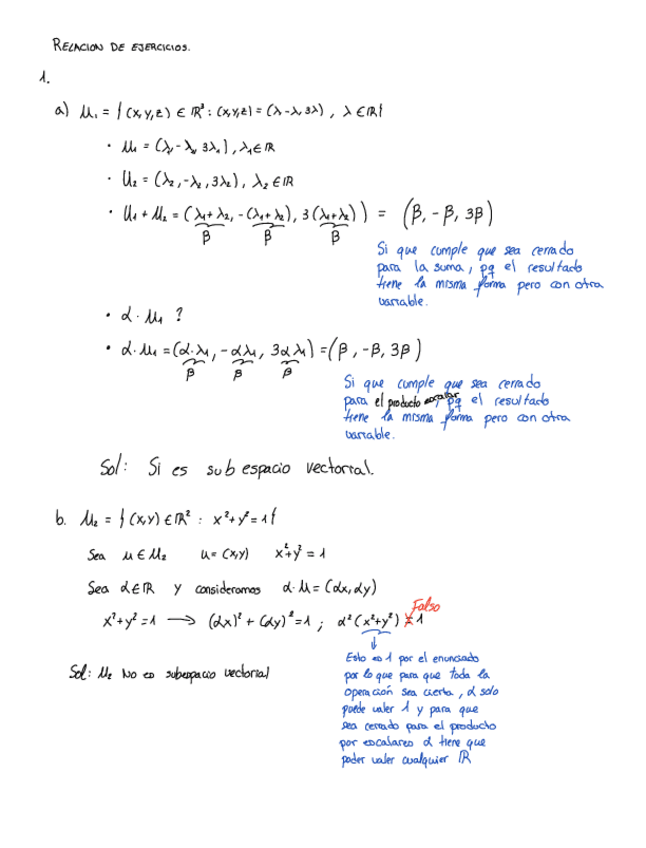 RELACION DE EJERCICIOS.
1.
a) U₁ = { (x,y,z) ∈ ℝ³ : (x,y,z) = (λ, -λ, 3λ) , λ ∈ ℝ }
• U₁ = (λ₁, -λ₁, 3λ₁), λ₁ ∈ ℝ
• U₂ = (λ₂, -λ₂, 3λ₂), λ₂ ∈ ℝ
• U₁ + U₂ = (λ₁+λ₂, -(λ₁+λ₂), 3(λ₁+λ₂)) = (β, -β, 3β)
β β β
Si que cumple que sea cerrado
para la suma, pq el resultado
tiene la misma forma pero con otra
variable.
• α · U₁ ?
• α · U₁ = (α·λ₁, -αλ₁, 3αλ₁) = (β, -β, 3β)
β β β
Si que cumple que sea cerrado
para el producto escalar, pq el resultado
tiene la misma forma pero con otra
variable.
Sol: Si es subespacio vectorial.
b. U₂ = { (x,y) ∈ ℝ² : x²+y² = 1 }
Sea u ∈ U₂ u = (x,y) x²+y² = 1
Sea α ∈ ℝ y consideramos α·u = (αx, αy)
Falso
x²+y² = 1 → (αx)² + (αy)² = 1 ; α²(x²+y²) = 1
Sol: U₂ No es subespacio vectorial
Esto es 1 por el enunciado
por lo que para que toda la
operación sea cierta, α solo
puede valer 1 y para que
sea cerrado para el producto
por escalares α tiene que
poder valer cualquier ℝ